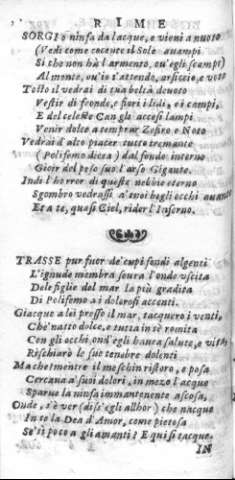 RIME
SORGI o ninfa da l'acque, e vieni a nuoto
(Vedi come cocente il Sole avampi
Sì che non hà l'armento, ou'egli scampi)
Al monte, ou'io t'attendo, arsiccio, e voto
Tosto il vedrai di tua beltà deuoto
Vestir di fronde, e fiori i lidi, e i campi,
E del celeste Can gli accesi lampi
Venir dolce a temprar Zefiro e Noto
Vedrai d'alto piacer tutto tremante
(Polifemo dicea) dal fondo interno
Gioir del peso suo l'arso Gigante.
Indi l'horror di queste nebbie eterno
Sgombro vedrassi a' tuoi begli occhi auante
Et a te, quasi Ciel, rider l'Inferno.
TRASSE pur fuor de' cupi fondi algenti
L'ignude membra soura l'onde vscita
De le figlie del mar la più gradita
Di Polifemo a i dolorosi accenti.
Giacque a lei presso il mar, tacquero i venti,
Che'n atto dolce, e tutta in sè romita
Con gli occhi, ond'egli hauea salute, e vita,
Rischiarò le sue tenebre dolenti
Ma chetmentre il meschin ristoro, e posa
Cercaua a' suoi dolori, in mezo l'acque
Sparue la ninfa immantenente ascosa,
Onde, s'è ver (diss'egli allhor) che nacque
In te la Dea d'Amor, come pietosa
Se' sì poco a gli amanti? E qui si tacque.
IN